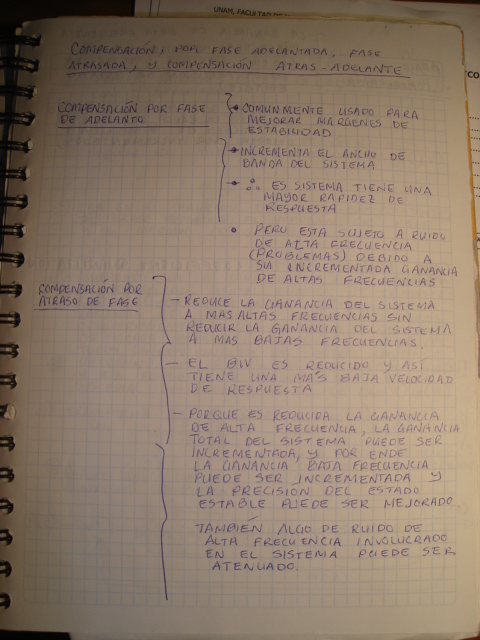 UNAM, FACULTAD DE
COMPENSACIÓN, POR FASE ADELANTADA, FASE
ATRASADA, Y COMPENSACIÓN ATRAS-ADELANTE
COMPENSACIÓN POR FASE
DE ADELANTO
• COMUNMENTE USADO PARA
MEJORAR MARGENES DE
ESTABILIDAD
• INCREMENTA EL ANCHO DE
BANDA DEL SISTEMA
• ∴ ES SISTEMA TIENE UNA
MAYOR RAPIDEZ DE
RESPUESTA
• PERO ESTA SUJETO A RUIDO
DE ALTA FRECUENCIA
(PROBLEMAS) DEBIDO A
SU INCREMENTADA GANANCIA
DE ALTAS FRECUENCIAS
COMPENSACIÓN POR
ATRASO DE FASE
- REDUCE LA GANANCIA DEL SISTEMA
A MAS ALTAS FRECUENCIAS SIN
REDUCIR LA GANANCIA DEL SISTEMA
A MAS BAJAS FRECUENCIAS.
- EL BW ES REDUCIDO Y ASÍ
TIENE UNA MAS BAJA VELOCIDAD
DE RESPUESTA
- PORQUE ES REDUCIDA LA GANANCIA
DE ALTA FRECUENCIA, LA GANANCIA
TOTAL DEL SISTEMA PUEDE SER
INCREMENTADA, Y POR ENDE
LA GANANCIA BAJA FRECUENCIA
PUEDE SER INCREMENTADA Y
LA PRECISION DEL ESTADO
ESTABLE PUEDE SER MEJORADO.
TAMBIÉN ALGO DE RUIDO DE
ALTA FRECUENCIA INVOLUCRADO
EN EL SISTEMA PUEDE SER
ATENUADO.